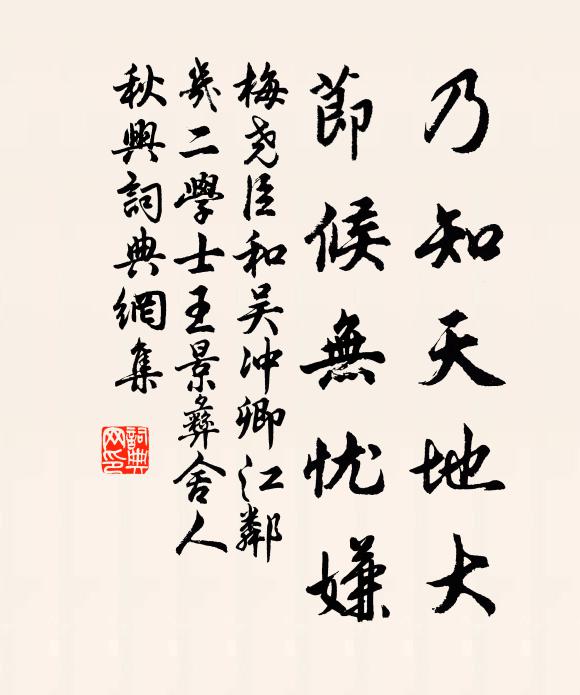 乃知天地大
節候無忧嫌
梅尧臣和吴冲卿江鄰
幾二學士王景彝舍人
秋興詞典網集
詞典
网印